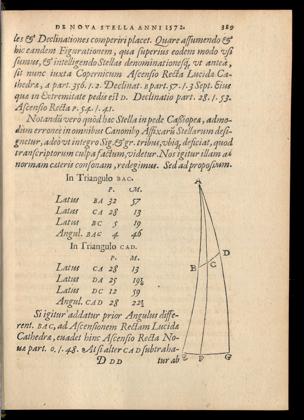 DE NOVA STELLA ANNI 1572. 389
les & Declinationes comperiri placet. Quare assumendo &
hic eandem Figurationem, qua superius eodem modo usi
sumus, & intelligendo Stellas denominationesq́, ut anteà,
sit nunc iuxta Copernicum Ascensio Recta Lucidæ Ca-
thedræ, A part. 356. 1. 2. Declinat. B part. 57. 1. 3 Sept. Eius
quæ in Extremitate pedis est D. Declinatio part. 28. 1. 53.
Ascensio Recta P. 54. 1. 41.
Notandū verò quòd hæc Stella in pede Cassiopeæ, admo-
dum erroneè in omnibus Canonibꝫ Affixarū Stellarum desi-
gnetur, adeò ut integro Sig. & gr. tribus, ubiq́, deficiat, quod
transcriptorum culpa factum, videtur. Nos igitur illam ad
normam cæteris consonam, redegimus. Sed ad propositum.
In Triangulo BAC.
P. M.
Latus BA 32 57
Latus CA 28 13
Latus BC 5 19
Angul. BAC 4 46
In Triangulo CAD.
P. M.
Latus CA 28 13
Latus DA 25
Latus DC 12 59
Angul. CAD 28
A
B C D
E P G
Si igitur addatur prior Angulus diffe-
rent. BAC, ad Ascensionem Rectam Lucidæ
Cathedræ, euadet hinc Ascensio Recta No-
uæ part. 0. 1. 48. At si alter CAD subtraha-
D DD tur ab